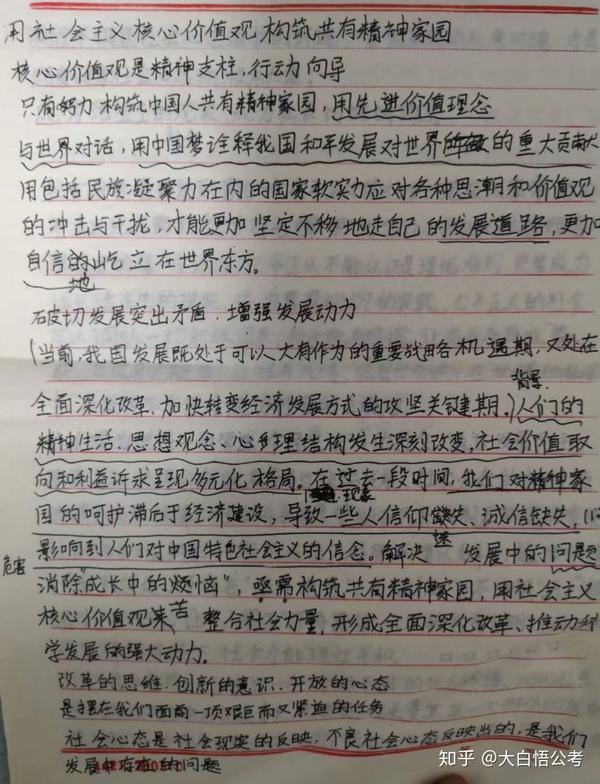 用社会主义核心价值观构筑共有精神家园
核心价值观是精神支柱,行动向导
只有努力构筑中国人共有精神家园,用先进价值理念
与世界对话,用中国梦诠释我国和平发展对世界的重大贡献
用包括民族凝聚力在内的国家软实力应对各种思潮和价值观
的冲击与干扰,才能更加坚定不移地走自己的发展道路,更加
自信的屹立在世界东方。
地
破切发展突出矛盾、增强发展动力
(当前,我国发展既处于可以大有作为的重要战略机遇期,又处在
背景
全面深化改革、加快转变经济发展方式的攻坚关键期。)人们的
精神生活、思想观念、心理结构发生深刻改变,社会价值取
向和利益诉求呈现多元化格局。在过去一段时间,我们对精神家
现象
园的呵护滞后于经济建设,导致一些人信仰缺失、诚信缺失,
迷
危害
影响到人们对中国特色社会主义的信念。解决 发展中的问题
消除"成长中的烦恼",亟需构筑共有精神家园,用社会主义
核心价值观来 整合社会力量,形成全面深化改革、推动科
学发展的强大动力。
改革的思维、创新的意识、开放的心态
是摆在我们面前一项艰巨而又紧迫的任务
社会心态是社会现实的反映,不良社会心态反映出的,是我们
发展中存在的问题
知乎 @大白悟公考